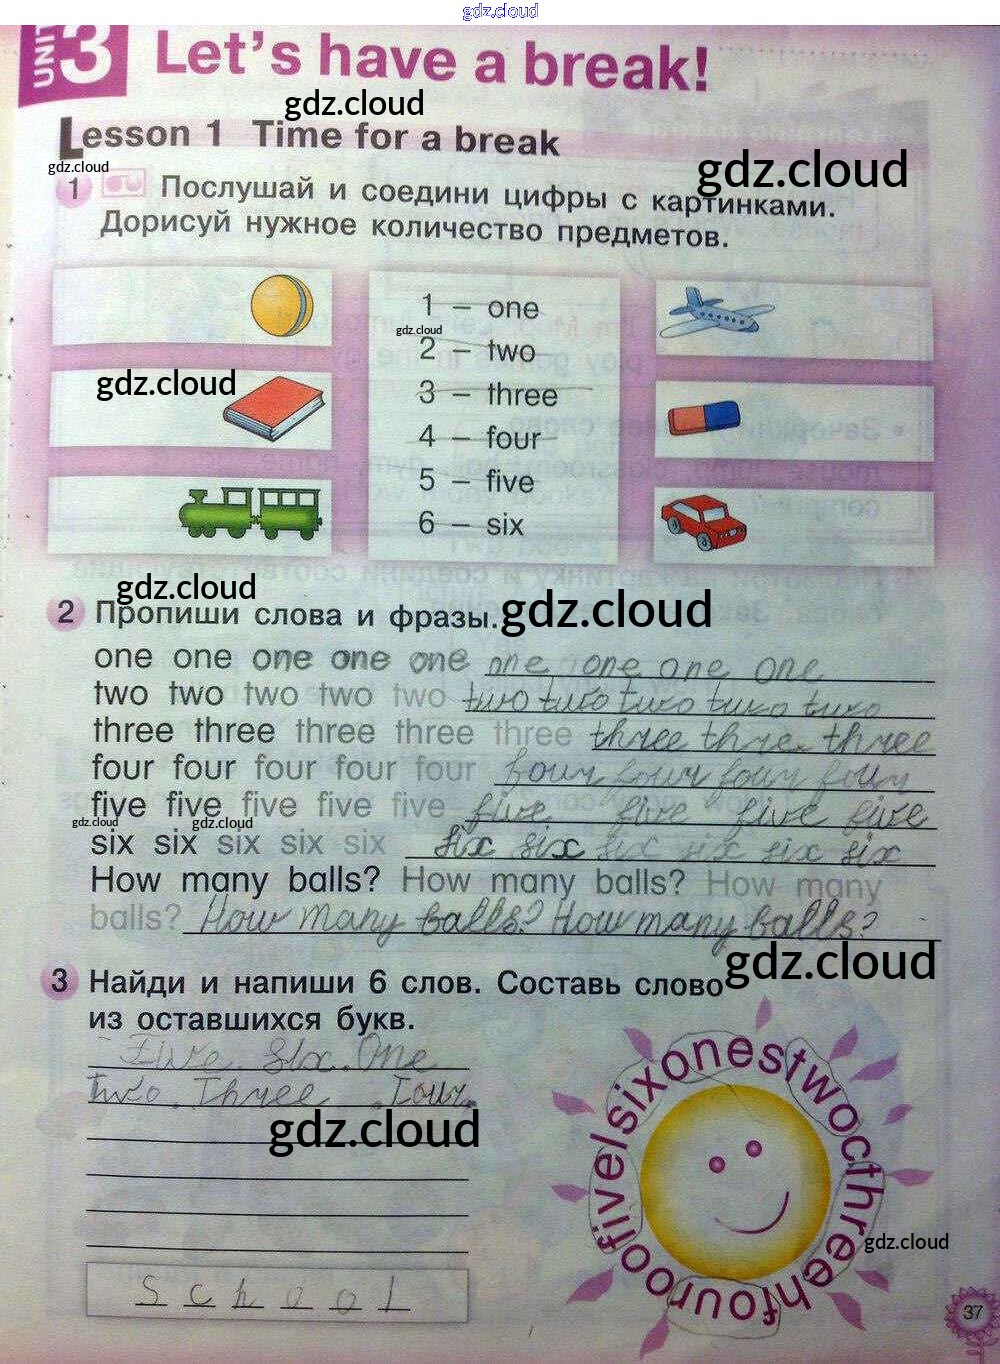 gdz.cloud
UNIT 3 Let's have a break!
gdz.cloud
Lesson 1 Time for a break
gdz.cloud
gdz.cloud
1 Послушай и соедини цифры с картинками.
Дорисуй нужное количество предметов.
1 – one
gdz.cloud
2 – two
gdz.cloud
3 – three
4 – four
5 – five
6 – six
gdz.cloud
2 Пропиши слова и фразы. gdz.cloud
one one one one one one one one one
two two two two two two two two two two
three three three three three three three three
four four four four four four four four four
five five five five five five five five five
gdz.cloud gdz.cloud
six six six six six six six six six six six
How many balls? How many balls? How many
balls? How many balls? How many balls?
gdz.cloud
3 Найди и напиши 6 слов. Составь слово
из оставшихся букв.
Five. Six. One
two. Three. Four.
gdz.cloud
fivelsixonestwocthreehfouroo
gdz.cloud
gdz.cloud
S c h o o l
37